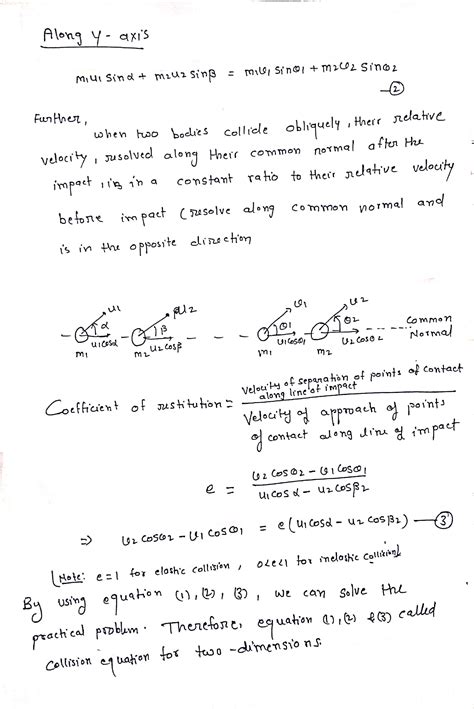 Along Y-axis
m1u1 sinα + m2u2 sinβ = m1v1 sinθ1 + m2v2 sinθ2
—②
Further,
when two bodies collide obliquely, their relative
velocity, resolved along their common normal after the
impact, is in a constant ratio to their relative velocity
before impact (resolve along common normal and
is in the opposite direction
u1 u2 v1 v2
α β θ1 θ2 Common
u1cosα u2cosβ v1cosθ1 v2cosθ2 Normal
m1 m2 m1 m2
Coefficient of restitution = Velocity of separation of points of contact
along line of impact
Velocity of approach of points
of contact along line of impact
e = v2cosθ2 - v1cosθ1
u1cosα - u2cosβ2
⇒ v2cosθ2 - v1cosθ1 = e(u1cosα - u2cosβ2) —③
[Note: e=1 for elastic collision, 0<e<1 for inelastic collision]
By using equation (1), (2), (3), we can solve the
practical problem. Therefore, equation (1), (2) & (3) called
collision equation for two-dimensions.